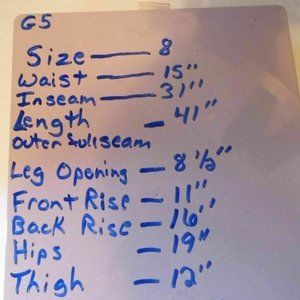 G5
Size — 8
Waist — 15"
Inseam — 31"
Length — 41"
outer suliseam
Leg Opening — 8 1/2"
Front Rise — 11"
Back Rise — 16"
Hips — 19"
Thigh — 12"